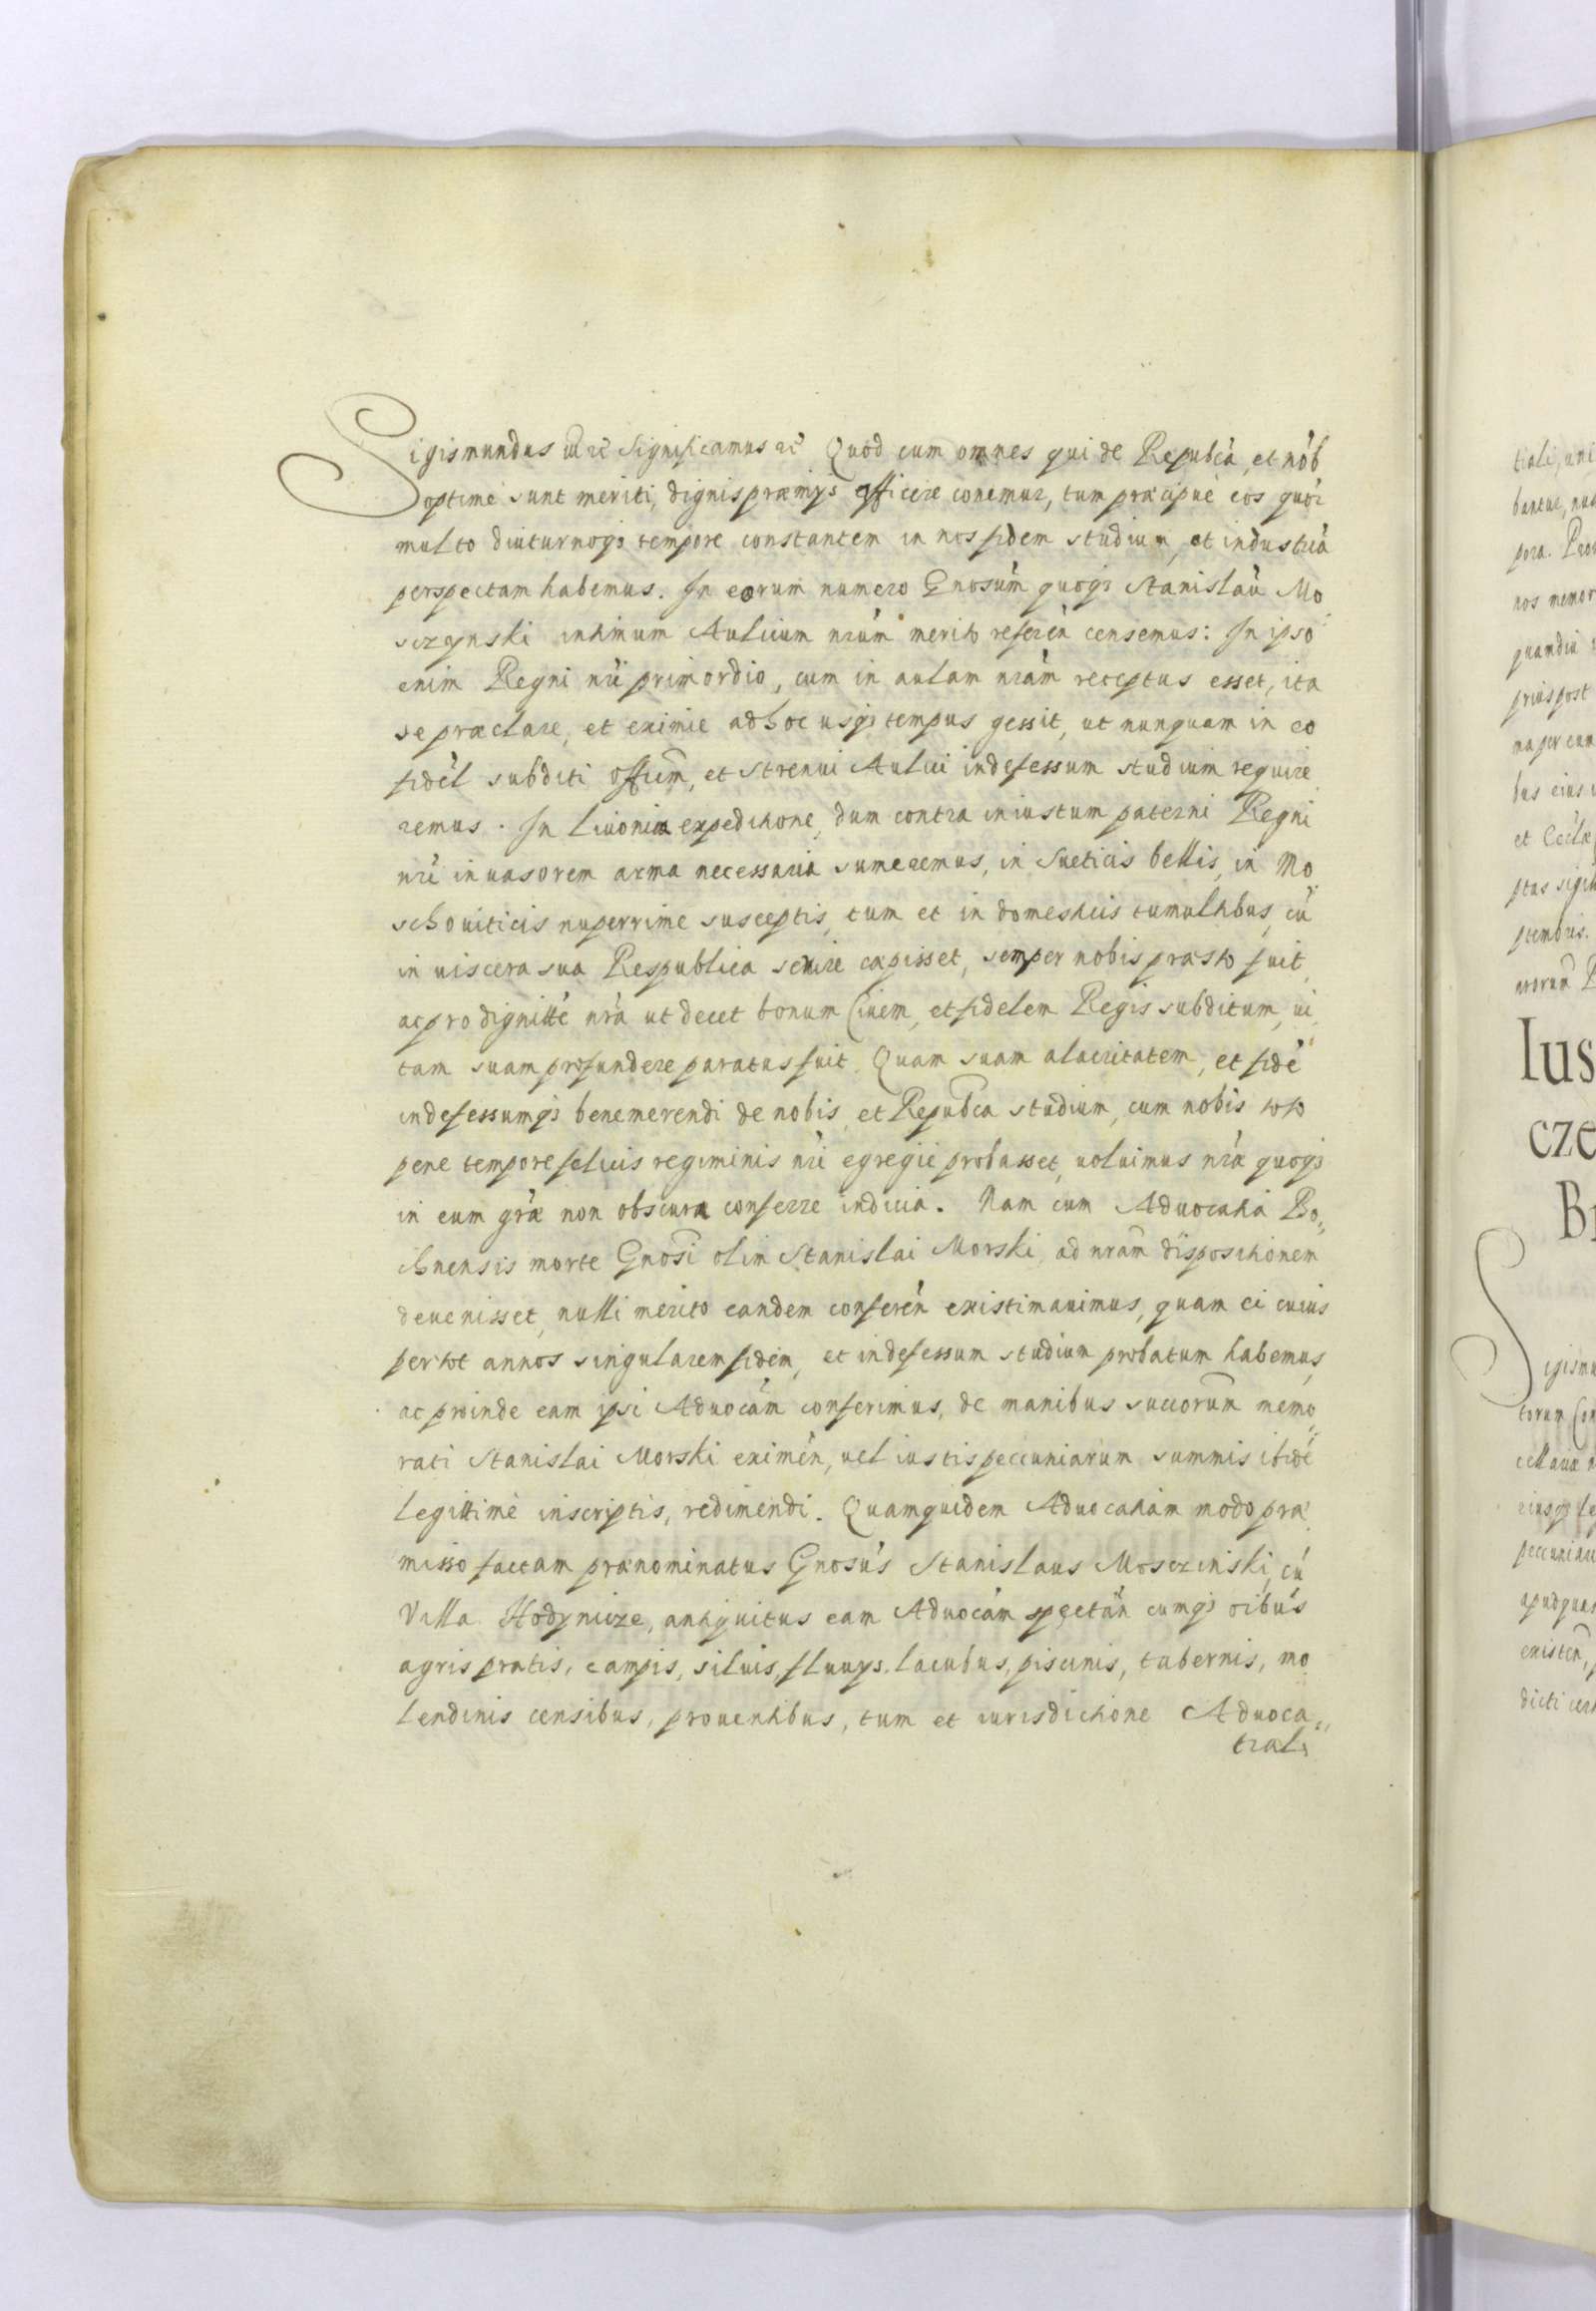 Sigismundus etc Significamus etc Quod cum omnes qui de Repubca, et nob
optime sunt meriti, dignis praemijs afficere conemur, tum praecipue eos quor
multo diuturnoqs tempore constantem in nos fidem studium, et industria
perspectam habemus. In eorum numero Gnosum quoqs Stanislau Mo
sczynski intimum Aulicum nrum merito referen censemus: In ipso
enim Regni nri primordio, cum in aulam nram receptus esset, ita
se praeclare, et eximie adhoc usqs tempus gessit, ut nunquam in eo
fidel subditi offium, et strenui Aulici indefessum studium require
remus. In Liuonica expeditione, dum contra iniustum paterni Regni
nri inuasorem arma necessaria sumeremus, in Sueticis bellis, in Mo
schouiticis nuperrime susceptis, tum et in domesticis tumultibus, cu
in uiscera sua Respublica seuire caepisset, semper nobis praesto fuit
ac pro dignitte nra ut decet bonum Ciuem, et fidelem Regis subditum, ui
tam suam profundere paratus fuit. Quam suam alacritatem, et fide
indefessumqs benemerendi de nobis, et Repubca studium, cum nobis toto
pene tempore felicis regiminis nri egregie probasset, uoluimus nrae quoqs
in eum grae non obscura conferre indicia. Nam cum Aduocatia Bo„
chnensis morte Gnosi olim Stanislai Morski, ad nram dispositionem
deuenisset, nulli merito eandem conferen existimauimus, quam ei cuius
per tot annos singularem fidem, et indefessum studium probatum habemus,
ac proinde eam ipsi Aduocam conferimus, de manibus succorum memo„
rati Stanislai Morski eximen, uel iustis peccuniarum summis ibide
legittime inscriptis, redimendi. Quamquidem Aduocatiam modo prae
misso factam praenominatus Gnosus Stanislaus Mosczinski, cu
Villa Hodynicze, antiquitus eam Aduocam spectan cumqs oibus
agris pratis, campis, siluis, fluuijs. lacubus, piscinis, tabernis, mo
lendinis censibus, prouentibus, tum et iurisdictione Aduoca„
tiali
tiali, uni
bantur, nus
pora. Pro
nos memor
quamdiu
prius post
na per eum
bus eius
et Eccla
ptas sigill
ptembris.
Ius
cze
Br
Sigismu
torum Con
cellariae n
eiusqs le
peccuniar
apud quas
existen,
dicti